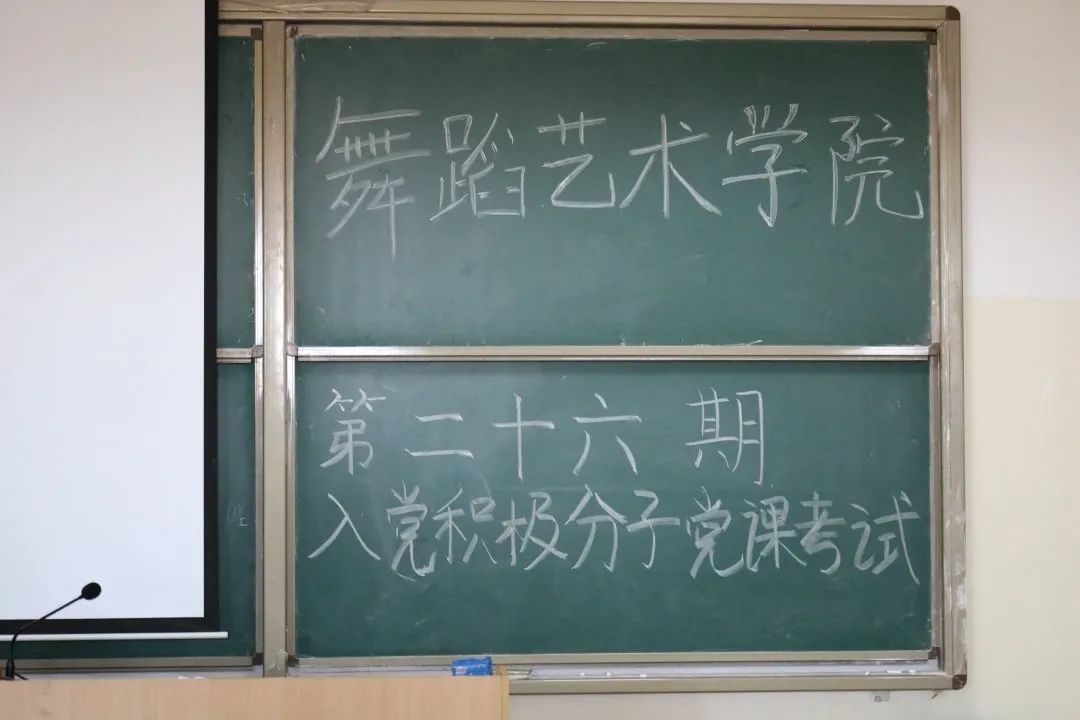 舞蹈艺术学院
第二十六期
入党积极分子党课考试